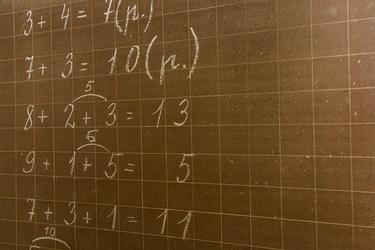 3 + 4 = 7(р.)
7 + 3 = 10(р.)
5
8 + 2 + 3 = 13
6
9 + 1 + 5 = 5
7 + 3 + 1 = 11
10